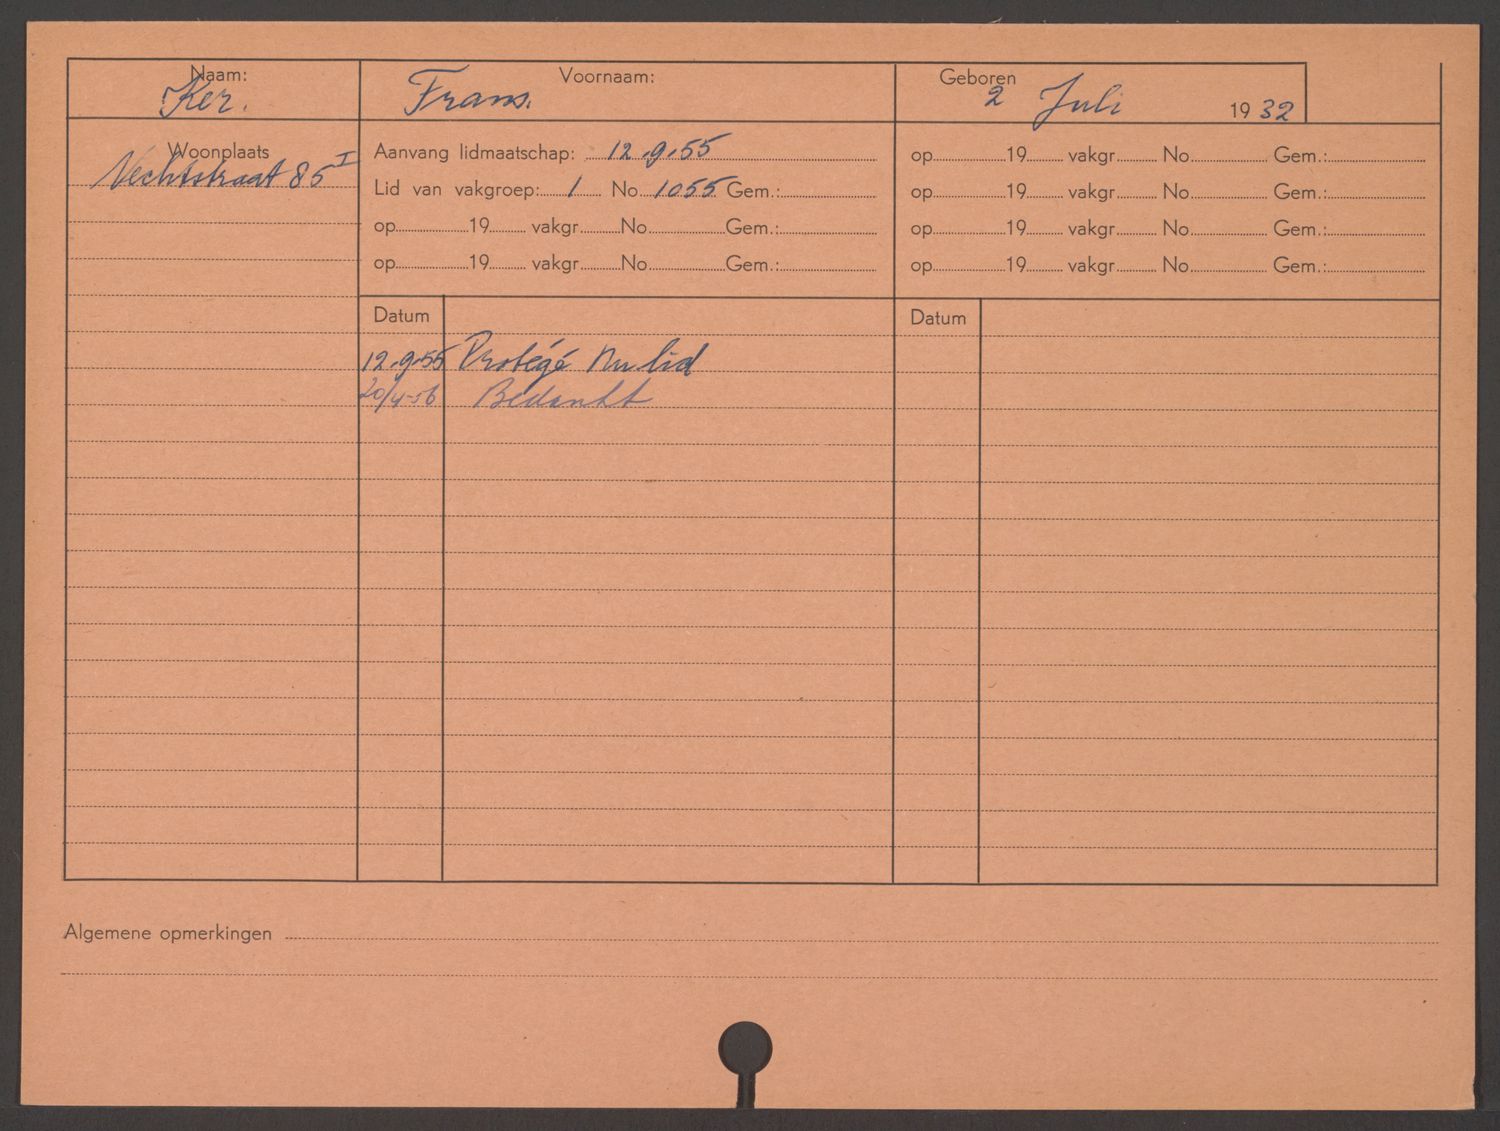 Naam: Voornaam: Geboren
Ker. Frans. 2 Juli 19 32
Woonplaats
Vechtstraat 85 I
Aanvang lidmaatschap: 12.9.55
Lid van vakgroep: 1 No 1055 Gem.:
op 19 vakgr No Gem.:
op 19 vakgr No Gem.:
op 19 vakgr No Gem.:
op 19 vakgr No Gem.:
op 19 vakgr No Gem.:
op 19 vakgr No Gem.:
Datum Datum
12.9.55 Protégé lid
20/4-56 Bedankt
Algemene opmerkingen